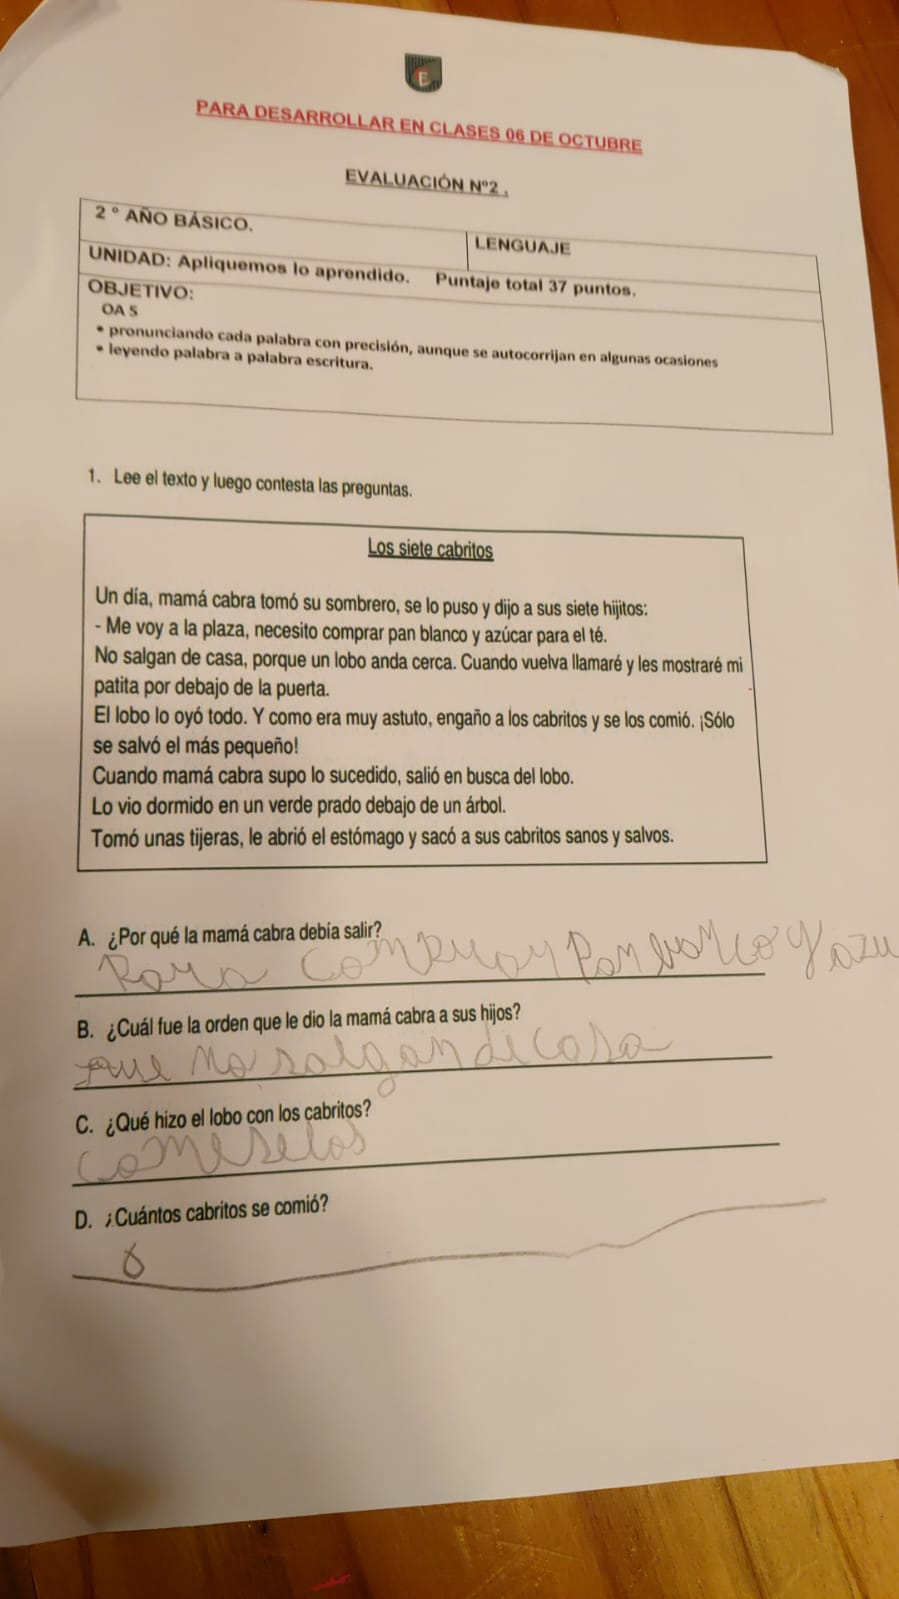 E
PARA DESARROLLAR EN CLASES 06 DE OCTUBRE
EVALUACIÓN Nº2 .
2 º AÑO BÁSICO. LENGUAJE
UNIDAD: Apliquemos lo aprendido. Puntaje total 37 puntos.
OBJETIVO:
OA 5
• pronunciando cada palabra con precisión, aunque se autocorrijan en algunas ocasiones
• leyendo palabra a palabra escritura.
1. Lee el texto y luego contesta las preguntas.
Los siete cabritos
Un día, mamá cabra tomó su sombrero, se lo puso y dijo a sus siete hijitos:
- Me voy a la plaza, necesito comprar pan blanco y azúcar para el té.
No salgan de casa, porque un lobo anda cerca. Cuando vuelva llamaré y les mostraré mi
patita por debajo de la puerta.
El lobo lo oyó todo. Y como era muy astuto, engaño a los cabritos y se los comió. ¡Sólo
se salvó el más pequeño!
Cuando mamá cabra supo lo sucedido, salió en busca del lobo.
Lo vio dormido en un verde prado debajo de un árbol.
Tomó unas tijeras, le abrió el estómago y sacó a sus cabritos sanos y salvos.
A. ¿Por qué la mamá cabra debía salir?
Para y azu
B. ¿Cuál fue la orden que le dio la mamá cabra a sus hijos?
que no salgan de casa
C. ¿Qué hizo el lobo con los cabritos?
comeselos
D. ¿Cuántos cabritos se comió?
6